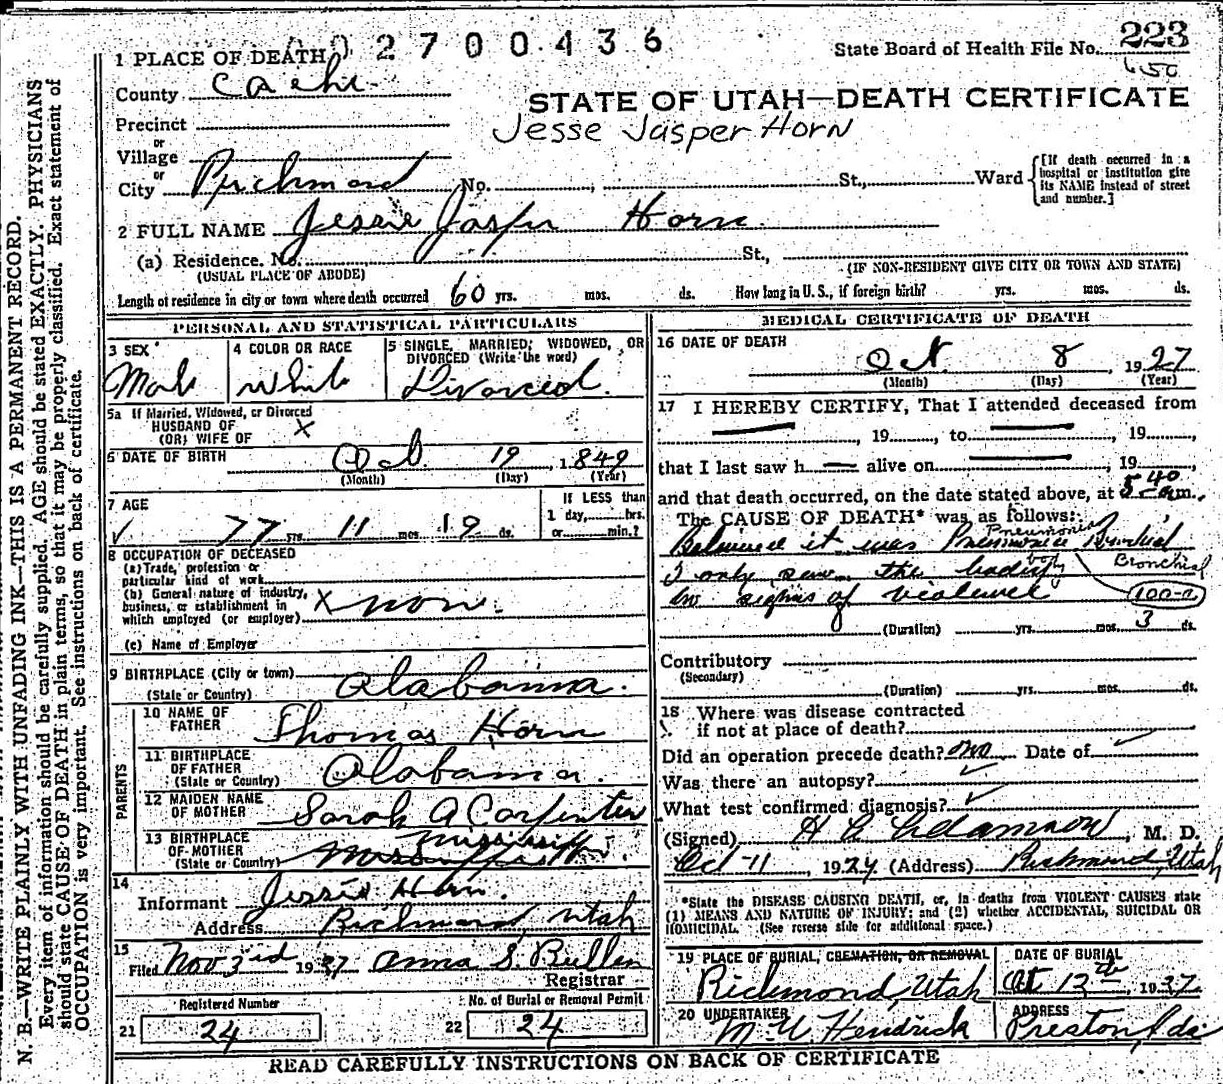 2700436
State Board of Health File No. 223
650
1 PLACE OF DEATH
County Cache
STATE OF UTAH—DEATH CERTIFICATE
Precinct
Jesse Jasper Horn
or
Village
or
City Richmond No. , St., Ward
[If death occurred in a
hospital or institution give
its NAME instead of street
and number.]
2 FULL NAME Jessie Jasper Horn
(a) Residence. No. St.,
(USUAL PLACE OF ABODE) (IF NON-RESIDENT GIVE CITY OR TOWN AND STATE)
Length of residence in city or town where death occurred 60 yrs. mos. ds. How long in U. S., if foreign birth? yrs. mos. ds.
PERSONAL AND STATISTICAL PARTICULARS
3 SEX Male
4 COLOR OR RACE White
5 SINGLE, MARRIED, WIDOWED, OR
DIVORCED (Write the word)
Divorced
5a If Married, Widowed, or Divorced
HUSBAND OF X
(OR) WIFE OF
6 DATE OF BIRTH Oct. 19, 1849
(Month) (Day) (Year)
7 AGE
77 yrs. 11 mos. 19 ds.
If LESS than
1 day, hrs.
or min.?
8 OCCUPATION OF DECEASED
(a) Trade, profession or
particular kind of work
(b) General nature of industry,
business, or establishment in
which employed (or employer) X non.
(c) Name of Employer
9 BIRTHPLACE (City or town)
(State or Country) Alabama.
PARENTS
10 NAME OF
FATHER Thomas Horn
11 BIRTHPLACE
OF FATHER
(State or Country) Alabama.
12 MAIDEN NAME
OF MOTHER Sarah A Carpenter
13 BIRTHPLACE
OF MOTHER
(State or Country) Mississippi
14
Informant Jessie Horn.
Address Richmond, Utah
15
Filed Nov 3rd 1927 Anna S. Bullen
Registrar
Registered Number
21 24
No. of Burial or Removal Permit
22 24
MEDICAL CERTIFICATE OF DEATH
16 DATE OF DEATH
Oct. 8 1927
(Month) (Day) (Year)
17 I HEREBY CERTIFY, That I attended deceased from
, 19 , to , 19
that I last saw h — alive on , 19
and that death occurred, on the date stated above, at 5-40 am.
The CAUSE OF DEATH* was as follows:
Pneumonia
Believed it was Pneumonia Bronchial
I only saw the body Bronchial
body
no signs of violence 100-a
(Duration) yrs. mos. 3 ds.
Contributory
(Secondary)
(Duration) yrs. mos. ds.
18 Where was disease contracted
if not at place of death?
Did an operation precede death? no Date of
Was there an autopsy?
What test confirmed diagnosis?
(Signed) , M. D.
Oct 11, 1927 (Address) Richmond, Utah
*State the DISEASE CAUSING DEATH, or, in deaths from VIOLENT CAUSES state
(1) MEANS AND NATURE OF INJURY; and (2) whether ACCIDENTAL, SUICIDAL OR
HOMICIDAL. (See reverse side for additional space.)
19 PLACE OF BURIAL, CREMATION, OR REMOVAL
Richmond, Utah
DATE OF BURIAL
Oct 12th, 1927
20 UNDERTAKER
Hendrick
ADDRESS
Preston, Ida
READ CAREFULLY INSTRUCTIONS ON BACK OF CERTIFICATE
N. B.—WRITE PLAINLY WITH UNFADING INK—THIS IS A PERMANENT RECORD.
Every item of information should be carefully supplied. AGE should be stated EXACTLY. PHYSICIANS
should state CAUSE OF DEATH in plain terms, so that it may be properly classified. Exact statement of
OCCUPATION is very important. See instructions on back of certificate.